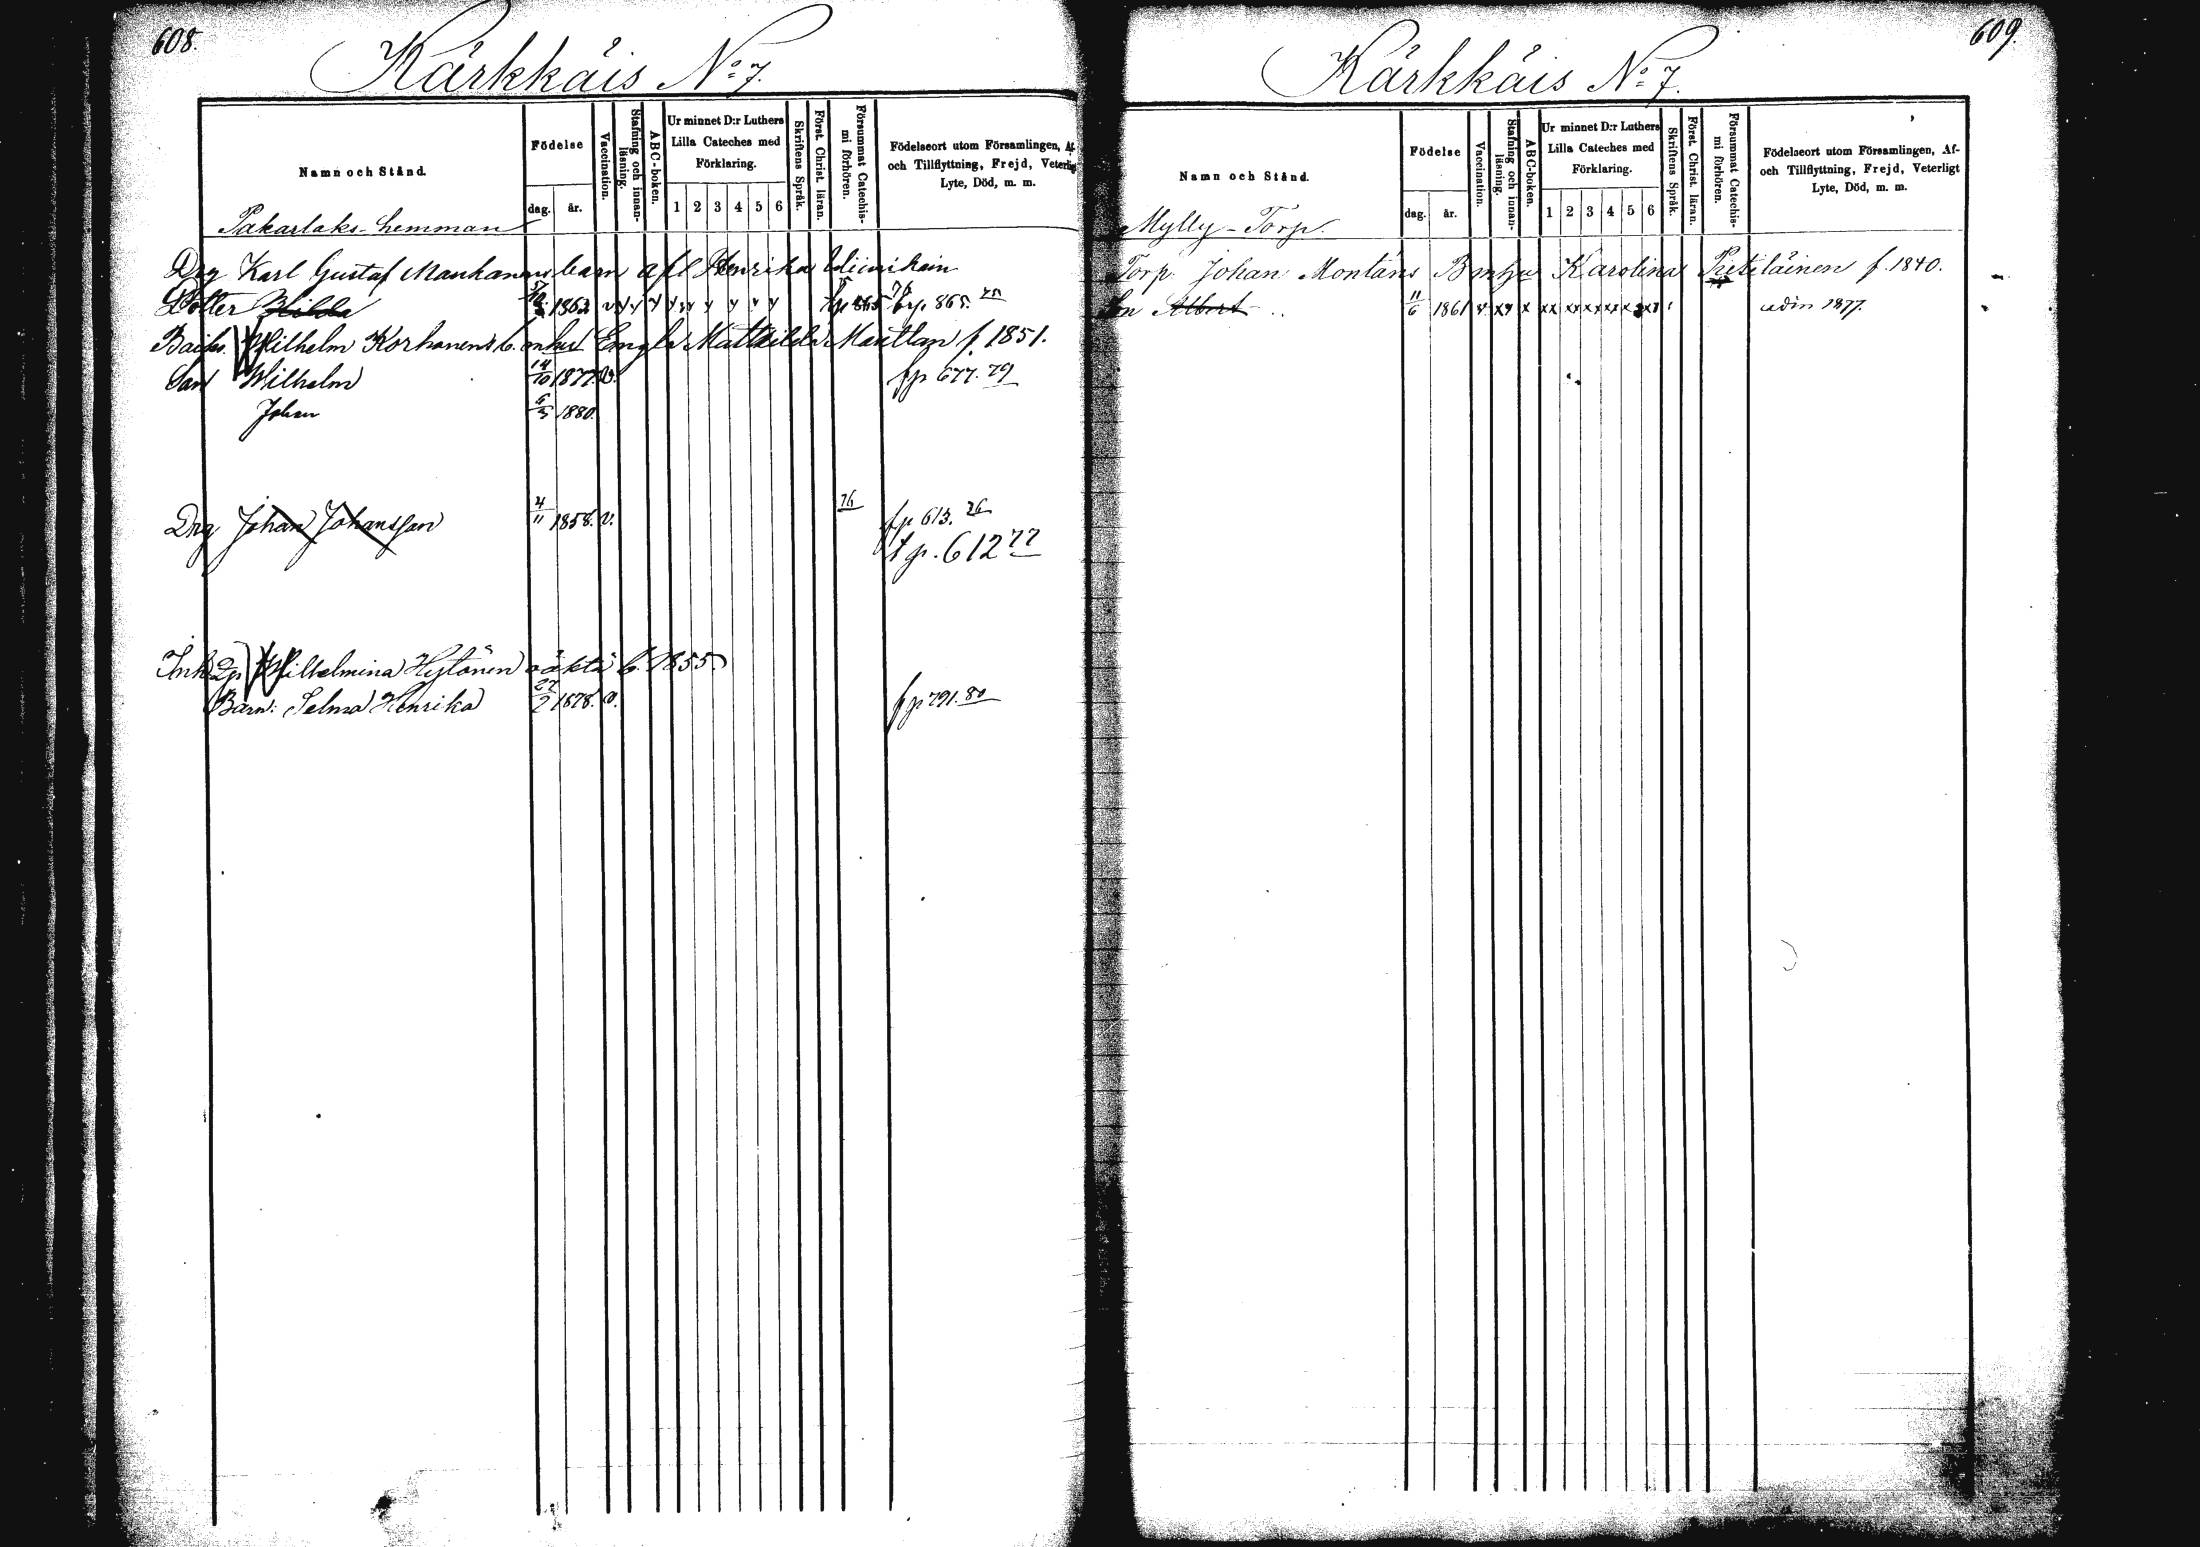 608.
Kärkkäis No 7.
Namn och Stånd.
Födelse
dag.
år.
Vaccination.
Stafning och innan-
läsning.
ABC-boken.
Ur minnet D:r Luthers
Lilla Cateches med
Förklaring.
1 2 3 4 5 6
Skriftens Språk.
Först. Christ. läran.
Försummat Catechis-
mi förhören.
Födelseort utom Församlingen, Af-
och Tillflyttning, Frejd, Veterligt
Lyte, Död, m. m.
Pakarlaks-hemman
Drg Karl Gustaf Manhanens barn af l Henrika
Dotter Hilda 1862 frp. 865. 75
Wilhelm Korhonens b. m hu Engla Mathilda f. 1851.
Son Wilhelm 14/10 1877. v. fp 677. 79
Johan 6/5 1880.
Drg Johan Johansson 4/11 1858. v. 76 fp 613. 76
t p. 612 77
Inh Wilhelmina Hytönen oäkta b. 1855
Barn: Selma Henrika 27/2 1878. v. fp 791. 80
609.
Kärkkäis No 7.
Namn och Stånd.
Födelse
dag.
år.
Vaccination.
Stafning och innan-
läsning.
ABC-boken.
Ur minnet D:r Luthers
Lilla Cateches med
Förklaring.
1 2 3 4 5 6
Skriftens Språk.
Först. Christ. läran.
Försummat Catechis-
mi förhören.
Födelseort utom Församlingen, Af-
och Tillflyttning, Frejd, Veterligt
Lyte, Död, m. m.
Mylly-Torp.
Torp. Johan Montäns B m hu Karolina Pietiläinen f. 1840.
Son Albert 11/6 1861 1877.